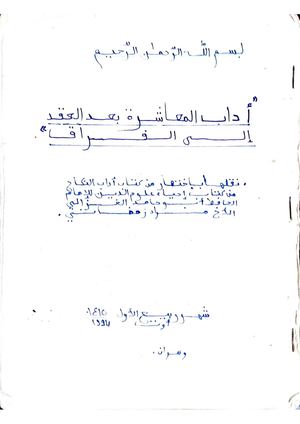 بسم الله الرحمان الرحيم
"أداب المعاشرة بعد العقد
إلى الفراق"
نقلها باختصار من كتاب أداب النكاح
من كتاب إحياء علوم الدين للإمام
الحافظ أبو حامد الغزالي
الأخ مراد
شهر ربيع الأول
أوت
وهران.